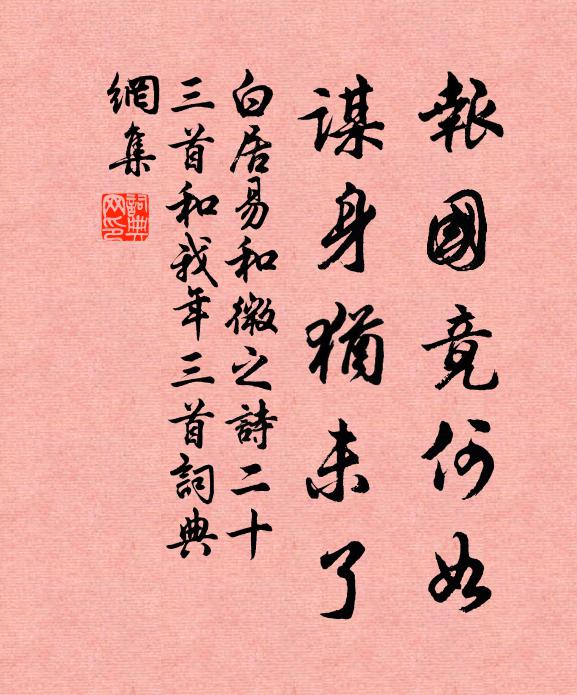 報國竟何如
謀身猶未了
白居易和微之詩二十
三首和我年三首詞典
網集
詞典
网印